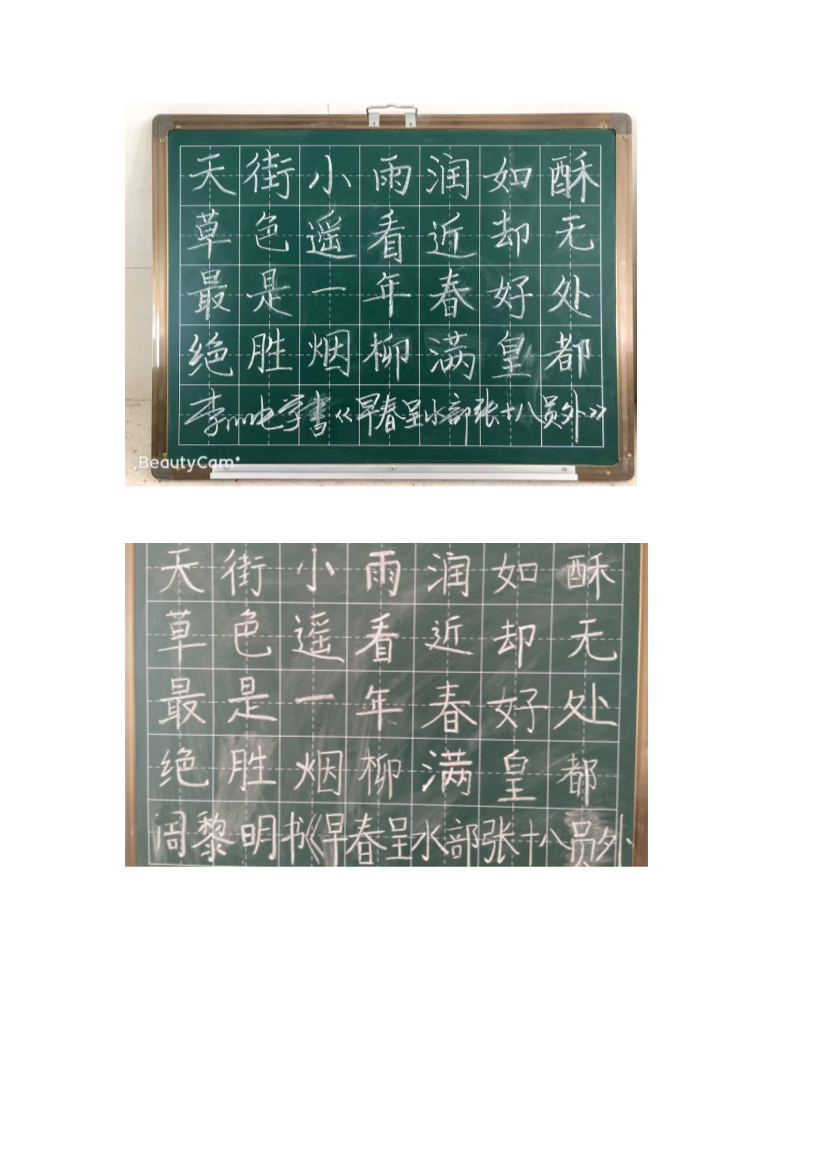 天街小雨润如酥
草色遥看近却无
最是一年春好处
绝胜烟柳满皇都
李 书《早春呈水部张十八员外》
BeautyCam
天街小雨润如酥
草色遥看近却无
最是一年春好处
绝胜烟柳满皇都
周黎明书《早春呈水部张十八员外